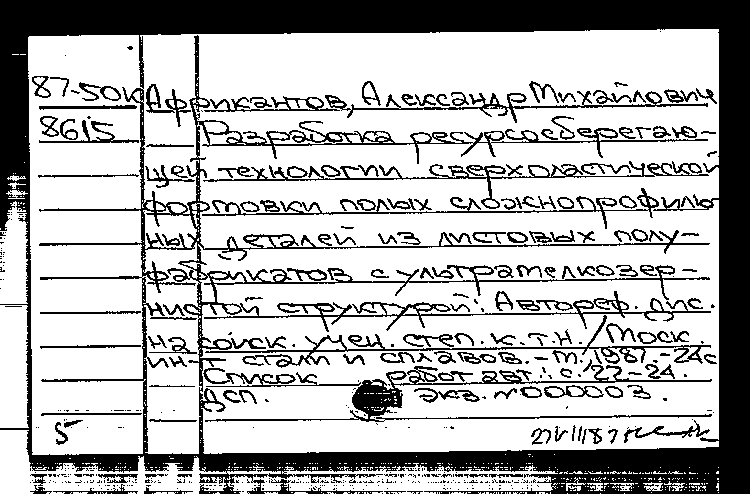 87-50к Африкантов, Александр Михайлович
8615 Разработка ресурсосберегаю-
щей технологии сверхпластической
формовки полых сложнопрофиль-
ных деталей из листовых полу-
фабрикатов с ультрамелкозер-
нистой структурой: Автореф. дис.
на соиск. учен. степ. к.т.н. / Моск.
ин-т стали и сплавов. - М., 1987. - 24с
Список работ авт.: с. 22-24.
Дсп. Экз. №000003.
5